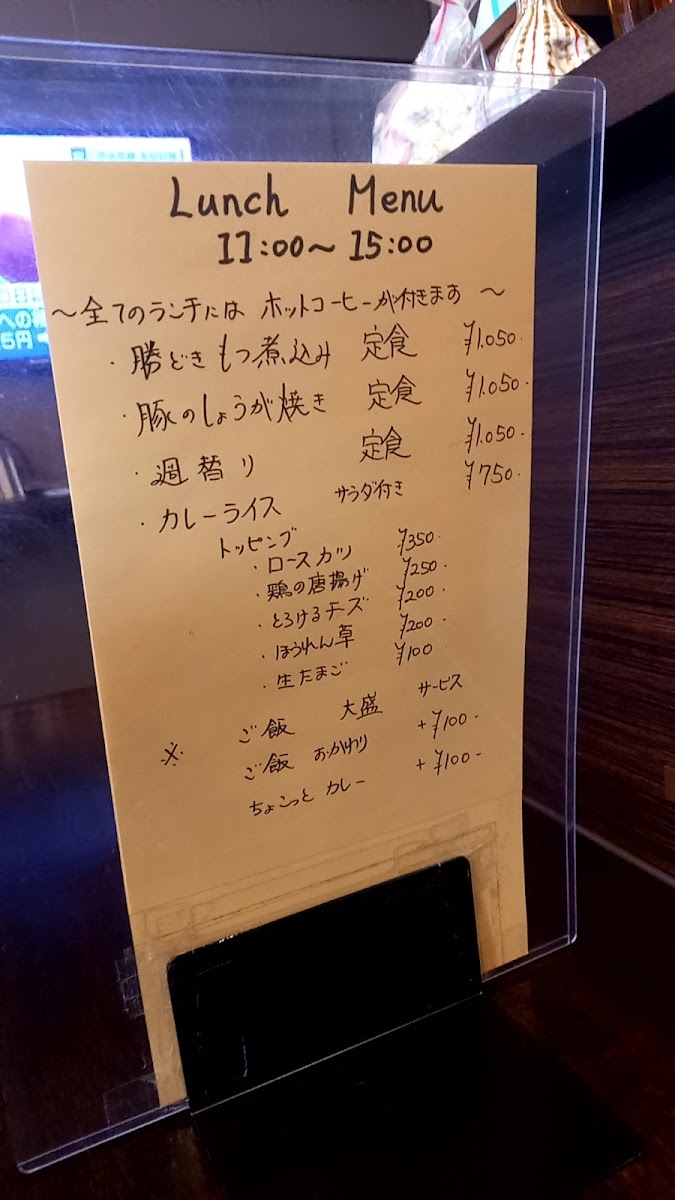 Lunch Menu
11:00〜15:00
〜全てのランチには ホットコーヒーが付きます 〜
・勝どき もつ煮込み 定食 ¥1.050-
・豚のしょうが焼き 定食 ¥1.050-
・週替り 定食 ¥1.050-
・カレーライス サラダ付き ¥750-
トッピング
・ロースカツ ¥350-
・鶏の唐揚げ ¥250-
・とろけるチーズ ¥200-
・ほうれん草 ¥200-
・生たまご ¥100-
※ ご飯 大盛 サービス
ご飯 おかわり +¥100-
ちょこっと カレー +¥100-